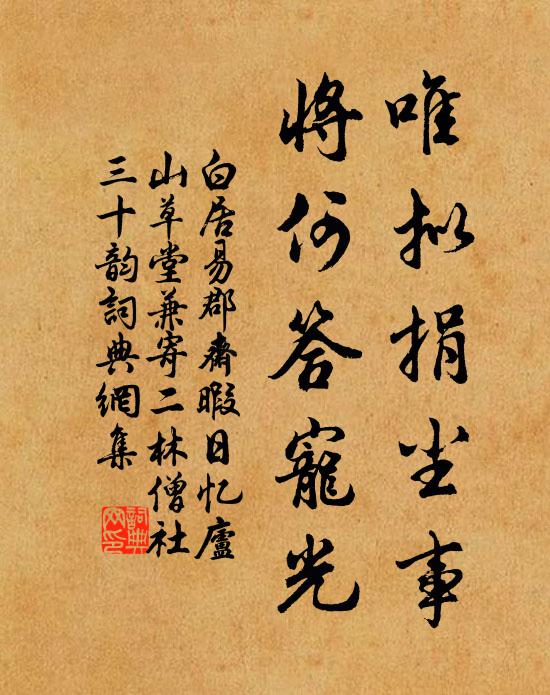 唯拟捐尘事
将何答寵光
白居易郡斋暇日忆廬
山草堂兼寄二林僧社
三十韵詞典網集
詞典網印